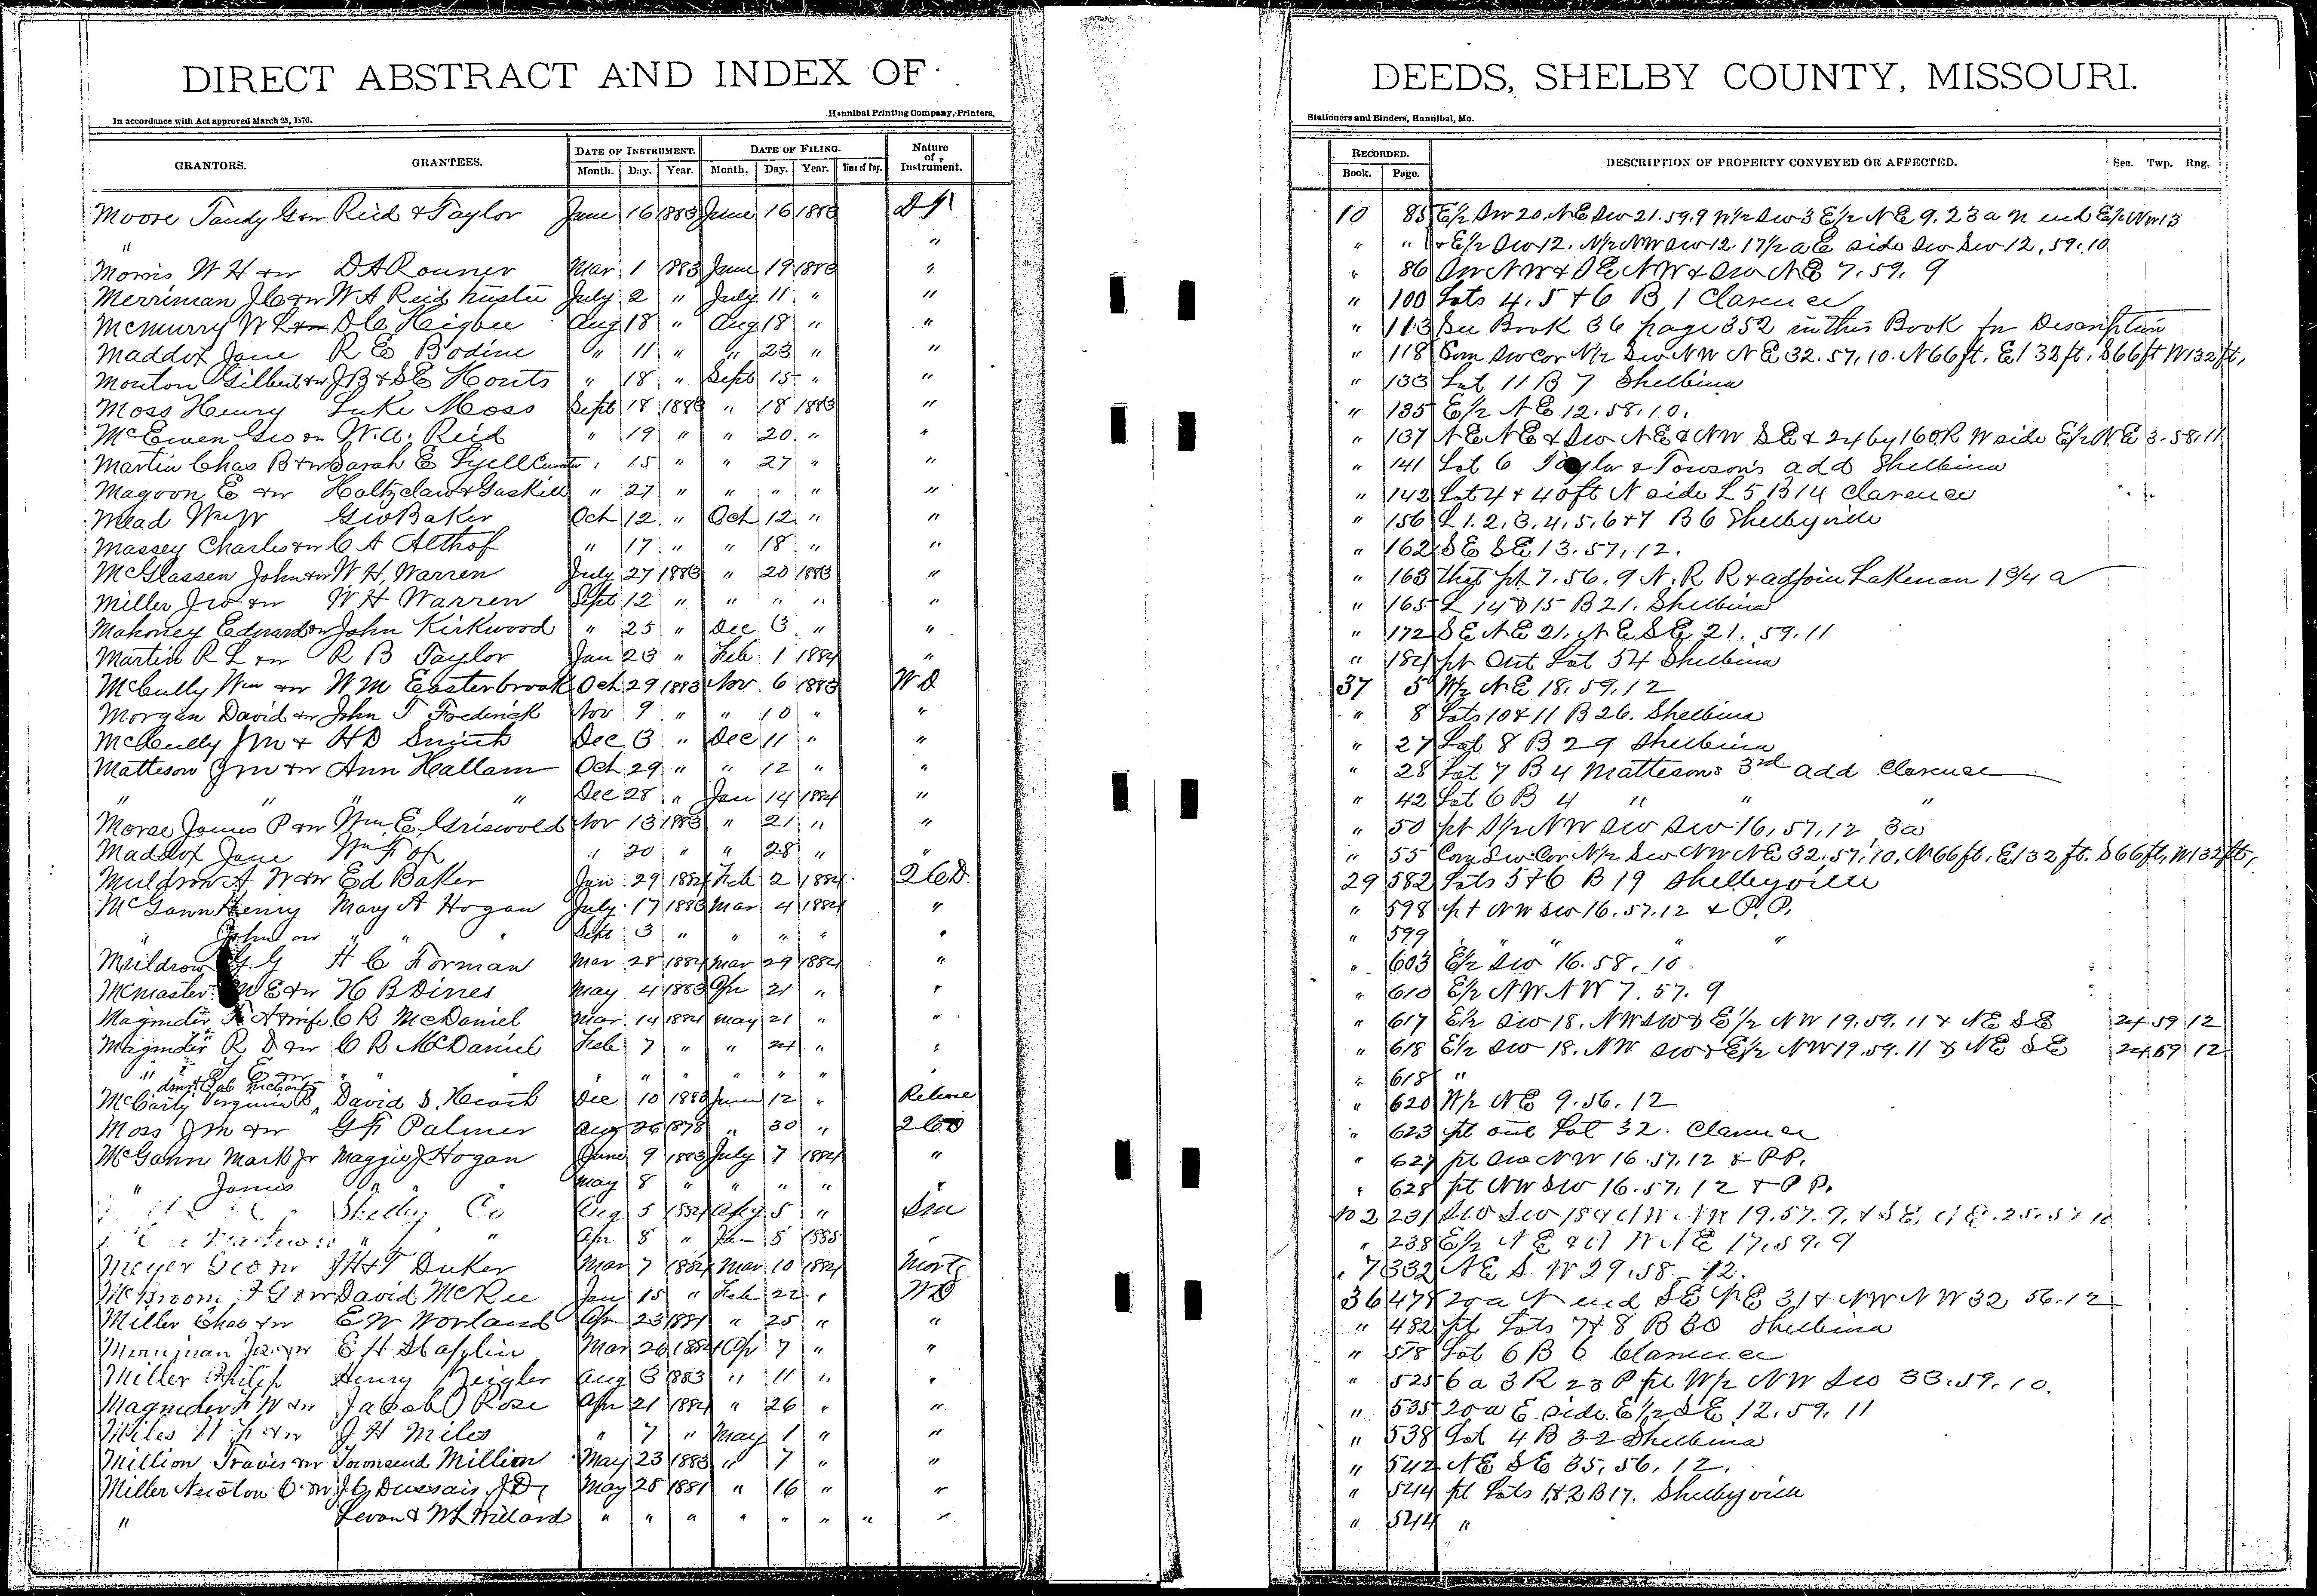 DIRECT ABSTRACT AND INDEX OF DEEDS, SHELBY COUNTY, MISSOURI.
In accordance with Act approved March 25, 1870. Hannibal Printing Company, Printers, Stationers and Binders, Hannibal, Mo.
GRANTORS. GRANTEES. DATE OF INSTRUMENT. Month. Day. Year. DATE OF FILING. Month. Day. Year. Time of Day. Nature of Instrument. RECORDED. Book. Page. DESCRIPTION OF PROPERTY CONVEYED OR AFFECTED. Sec. Twp. Rng.
Moore Tandy G & w Reid & Taylor June 16 1883 June 16 1883 10 85 E1/2 SW 20. NE SW 21. 59.9 W1/2 SW 3 E1/2 NE 9. 23 a N end E1/2 NW 13
" " " " & E1/2 SW 12. N1/2 NW SW 12. 17 1/2 a E side SW SW 12, 59.10
Morris W H & w D A Rouner Mar 1 1883 June 19 1883 " " 86 SW NW & SE NW & SW NE 7. 59. 9
Merriman J C & w W A Reid trustee July 2 " July 11 " " " 100 Lots 4. 5 & 6 B 1 Clarence
McMurry W L & w D C Higbee Aug 18 " Aug 18 " " " 113 See Book 36 page 352 in this Book for Description
Maddox Jane R E Bodine " 11 " " 23 " " " 118 Com SW cor N1/2 SW NW NE 32. 57. 10. N 66 ft. E 132 ft. S 66 ft W 132 ft,
Mouton Gilbert & w J B & S E Houts " 18 " Sept 15 " " " 133 Lot 11 B 7 Shelbina
Moss Henry Luke Moss Sept 18 1883 " 18 1883 " " 135 E1/2 NE 12. 58. 10.
McEwen Geo & w W. A. Reid " 19 " " 20 " " " 137 NE NE & SW NE & NW SE & 24 by 160 R W side E1/2 NE 3. 58. 11
Martin Chas B & w Sarah E Lyell " 15 " " 27 " " " 141 Lot 6 Taylor & Towson's add Shelbina
Magoon E & w Holtzclaw & Gaskill " 27 " " " " " " 142 Lot 4 & 40 ft N side L 5 B 14 Clarence
Mead Wm W Geo Baker Oct 12 " Oct 12 " " " 156 L 1. 2. 3. 4. 5. 6 & 7 B 6 Shelbyville
Massey Charles & w C A Althof " 17 " " 18 " " " 162 SE SE 13. 57. 12.
McGlassen John & w W H. Warren July 27 1883 " 20 1883 " " 163 that pt 7. 56. 9 N. R R & adjoin Lakenan 1 3/4 a
Miller Jno & w W H Warren Sept 12 " " " " " " 165 L 14 & 15 B 21. Shelbina
Mahoney Edward & w John Kirkwood " 25 " Dec 3 " " " 172 SE NE 21. NE SE 21. 59. 11
Martin R L & w R B Taylor Jan 23 " Feb 1 1884 " " 184 pt Out Lot 54 Shelbina
McCully Wm & w W M Easterbrook Oct 29 1883 Nov 6 1883 WD 37 5 W1/2 NE 18. 59. 12
Morgan David & w John T Frederick Nov 9 " " 10 " " " 8 Lots 10 & 11 B 26. Shelbina
McCully J M & H D Smith Dec 3 " Dec 11 " " " 27 Lot 8 B 29 Shelbina
Matteson J M & w Ann Hallam Oct 29 " " 12 " " " 28 Lot 7 B 4 Mattesons 3rd add Clarence
" " " " Dec 28 " Jan 14 1884 " " 42 Lot 6 B 4 " " "
Morse James P & w Wm. E. Griswold Nov 13 1883 " 21 " " " 50 pt S1/2 NW SW SW 16. 57. 12 3 a
Maddox Jane Wm Fox " 20 " " 28 " " " 55 Com SW Cor N1/2 SW NW NE 32. 57. 10. N 66 ft. E 132 ft. S 66 ft. W 132 ft,
Muldrow A W & w Ed Baker Jan 29 1884 Feb 2 1884 2 C D 29 582 Lots 5 & 6 B 19 Shelbyville
McGann Henry Mary A Hogan July 17 1883 Mar 4 1884 " " 598 pt NW SW 16. 57. 12 & P. P.
" John & w " " Sept 3 " " " " " " 599 " " " "
Muldrow G H C Forman Mar 28 1884 Mar 29 1884 " " 603 E1/2 SW 16. 58. 10
McMaster W E & w H B Dines May 4 1883 Apr 21 " " " 610 E1/2 NW NW 7. 57. 9
Magruder A & wife C R McDaniel Mar 14 1884 May 21 " " " 617 E1/2 SW 18. NW SW & E1/2 NW 19. 59. 11 & NE SE 24 59 12
Magruder R D & w C R McDaniel Feb 7 " " 24 " " " 618 E1/2 SW 18. NW SW & E1/2 NW 19. 59. 11 & NE SE 24 59 12
" " " " " " " " " 618 "
McCarty Virginia B, David S. Heath Dec 10 1880 June 12 " Release " 620 W1/2 NE 9. 56. 12
Moss J M & w G F Palmer Aug 26 1878 " 30 " 2 C D " 623 pt out Lot 32. Clarence
McGann Mark Jr Maggie J Hogan June 9 1883 July 7 1884 " " 627 pt SW NW 16. 57. 12 & P P.
" James " " May 8 " " " " " " 628 pt NW SW 16. 57. 12 & P P.
Shelby Co Aug 5 1884 Aug 5 " 231 SW SW 18 & NW NW 19. 57. 9. & SE NE. 25. 57. 10
" " Apr 8 " Jan 8 1885 " " 238 E1/2 NE & NW NE 17. 59. 9
Meyer Geo & w J H & T Duker Mar 7 1884 Mar 10 1884 Mortg 7 332 NE SW 29. 58 12.
McBroom F G & w David McKee Jan 15 " Feb 22 " WD 36 478 20 a N end SE NE 31 & NW NW 32 56. 12
Miller Chas & w E W Worland Apr 23 1881 " 25 " " " 482 pt Lots 7 & 8 B 30 Shelbina
Merriman & w E H Slaplin Mar 26 1884 Ap 7 " " " 518 Lot 6 B 6 Clarence
Miller Philip Henry Zeigler Aug 3 1883 " 11 " " " 525 6 a 3 R 23 P pt W1/2 NW SW 33. 59. 10.
Magruder F W & w Jacob O Rose Apr 21 1884 " 26 " " " 535 20 a E side E1/2 SE 12. 59. 11
Miles & w J H Miles " 7 " May 1 " " " 538 Lot 4 B 32 Shelbina
Million Travis & w Townsend Million May 23 1883 " 7 " " " 542 NE SE 35. 56. 12.
Miller Newton C & w J C Dussair J D, May 28 1881 " 16 " " " 544 pt Lots 1 & 2 B 17. Shelbyville
" Levan & W L Willard " " " " " " " " " 544 "